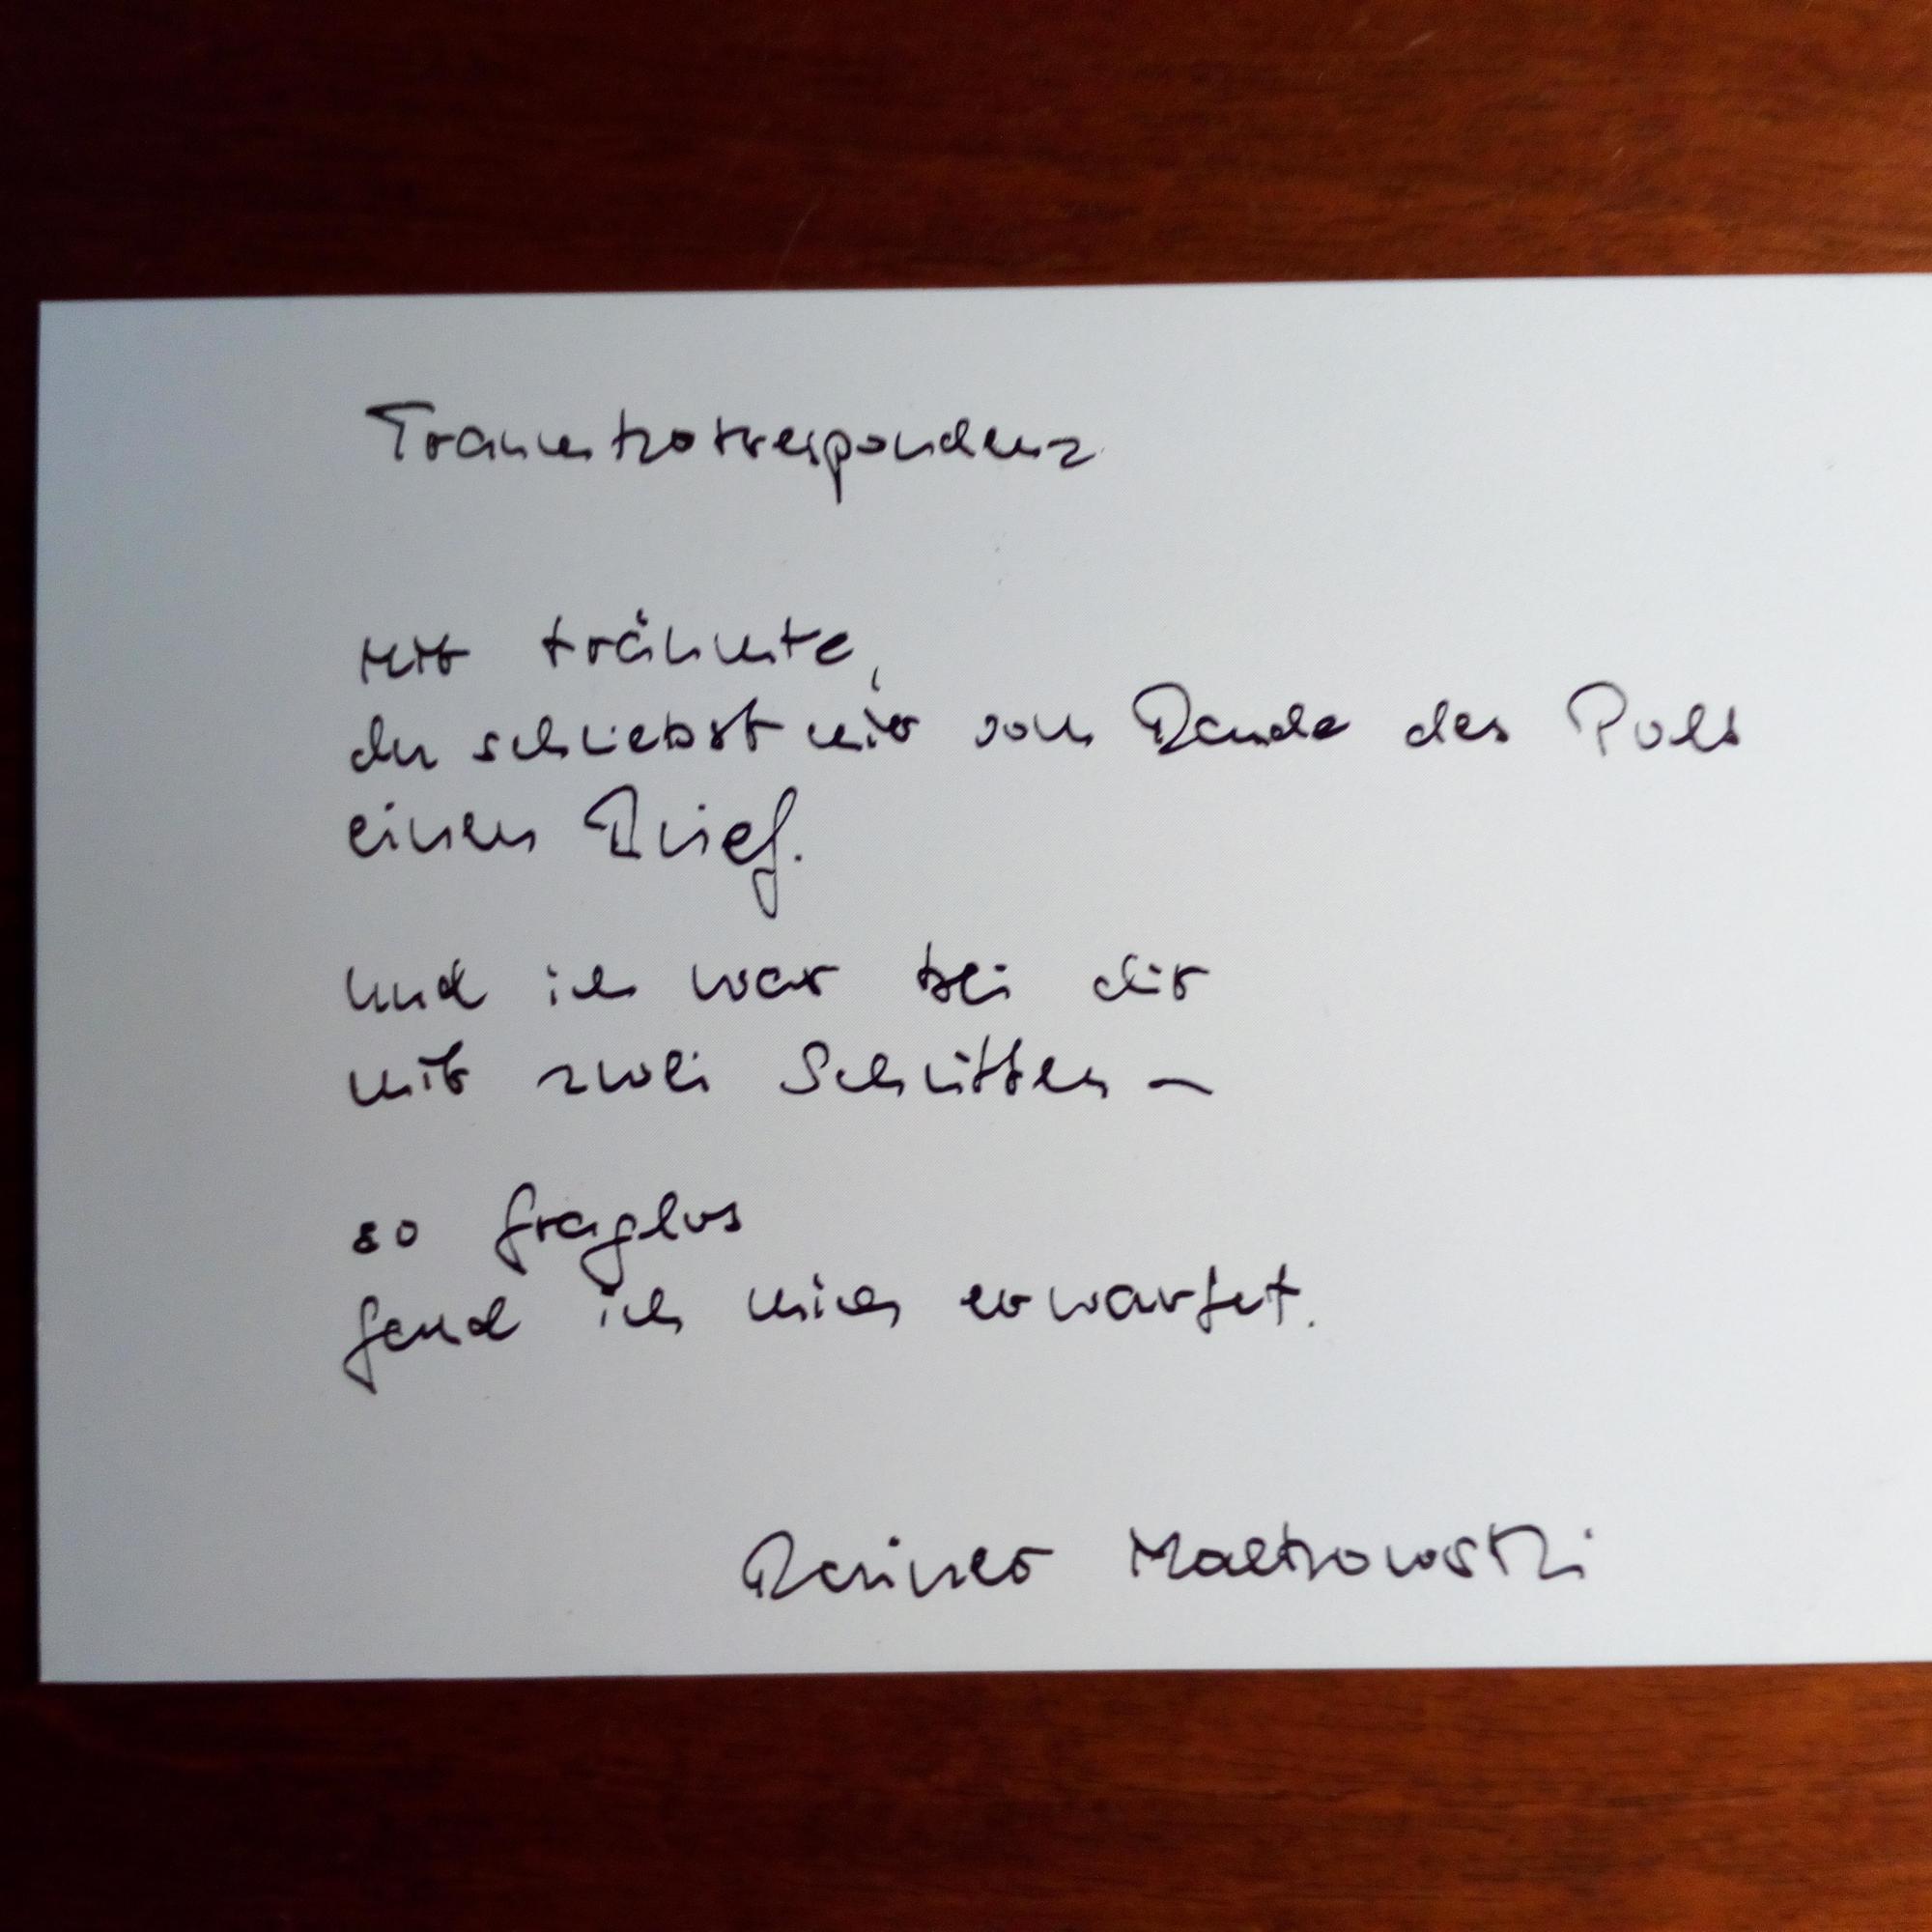 Traumkorrespondenz
Mir träumte,
du schriebst mir vom Rande des Pols
einen Brief.
Und ich war bei dir
mit zwei Schritten –
so fraglos
fand ich mich erwartet.
Rainer Malkowski